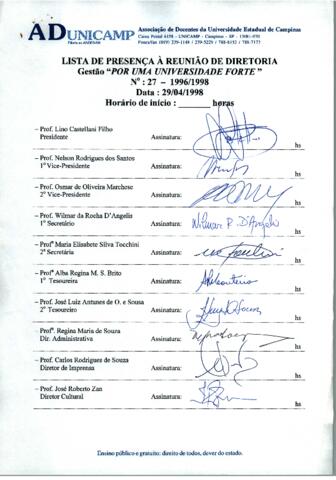 ADUNICAMP
Associação de Docentes da Universidade Estadual de Campinas
LISTA DE PRESENÇA À REUNIÃO DE DIRETORIA
Gestão "POR UMA UNIVERSIDADE FORTE"
Nº : 27 - 1996/1998
Data : 29/04/1998
Horário de início : ______ horas
– Prof. Lino Castellani Filho
Presidente Assinatura:
hs
– Prof. Nelson Rodrigues dos Santos
1º Vice-Presidente Assinatura:
hs
– Prof. Osmar de Oliveira Marchese
2º Vice-Presidente Assinatura:
hs
– Prof. Wilmar da Rocha D'Angelis
1º Secretário Assinatura: Wilmar R. D'Angelis
hs
– Profª Maria Elisabete Silva Tocchini
2ª Secretária Assinatura:
hs
– Profª Alba Regina M. S. Brito
1ª Tesoureira Assinatura:
hs
– Prof. José Luiz Antunes de O. e Sousa
2º Tesoureiro Assinatura:
hs
– Profª. Regina Maria de Souza
Dir. Administrativa Assinatura:
hs
– Prof. Carlos Rodrigues de Souza
Diretor de Imprensa Assinatura:
hs
– Prof. José Roberto Zan
Diretor Cultural Assinatura:
hs
Ensino público e gratuito: direito de todos, dever do estado.